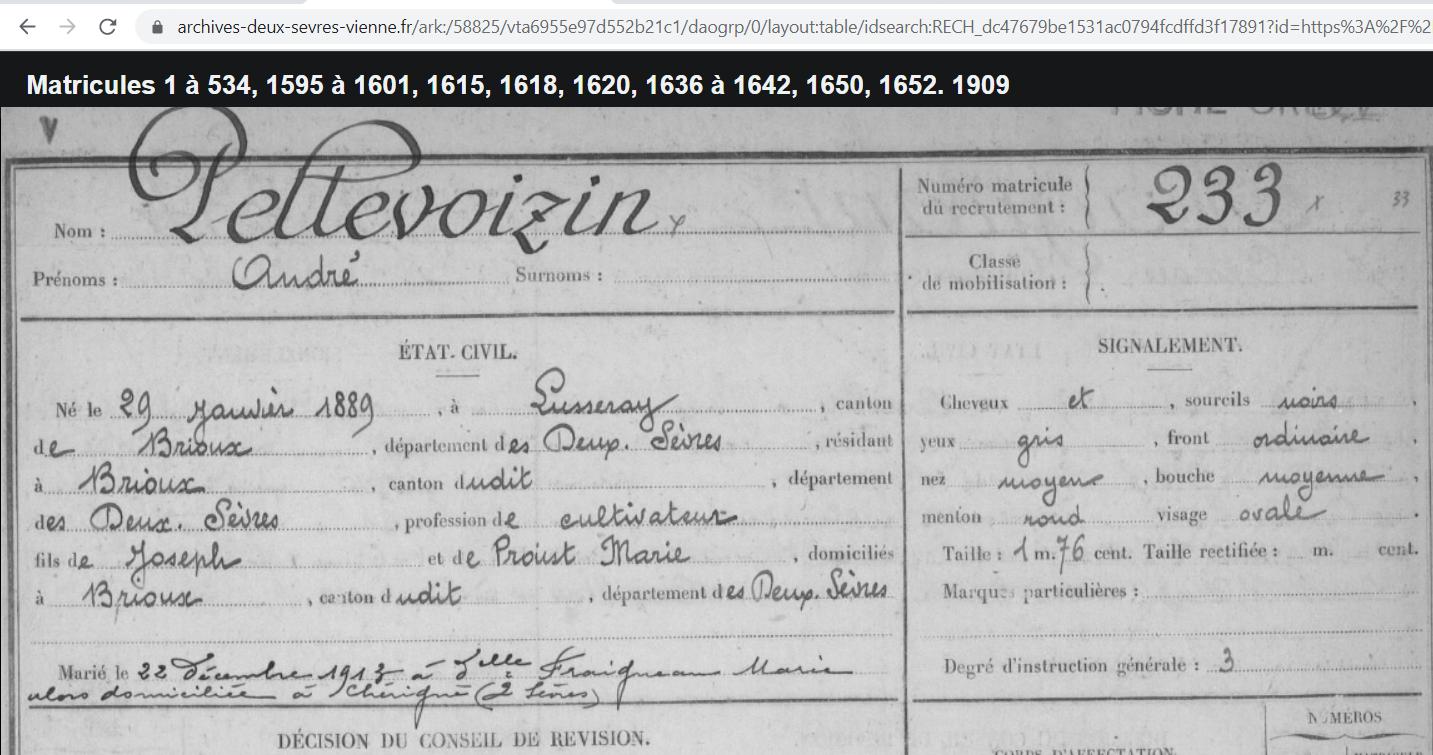 archives-deux-sevres-vienne.fr/ark:/58825/vta6955e97d552b21c1/daogrp/0/layout:table/idsearch:RECH_dc47679be1531ac0794fcdffd3f17891?id=https%3A%2F%2
Matricules 1 à 534, 1595 à 1601, 1615, 1618, 1620, 1636 à 1642, 1650, 1652. 1909
Nom : Pettevoizin
Prénoms : André Surnoms :
Numéro matricule du recrutement : 233 x 33
Classe de mobilisation :
ÉTAT-CIVIL.
Né le 29 Janvier 1889, à Lusseray, canton
de Brioux, département des Deux. Sèvres, résidant
à Brioux, canton dudit, département
des Deux. Sèvres, profession de cultivateur
fils de Joseph et de Proust Marie, domiciliés
à Brioux, canton dudit, département des Deux. Sèvres
Marié le 22 Décembre 1913 à Fraigneau Marie
alors domiciliée à Chérigné (2 Sèvres)
DÉCISION DU CONSEIL DE REVISION.
SIGNALEMENT.
Cheveux et, sourcils noirs,
yeux gris, front ordinaire,
nez moyen, bouche moyenne,
menton rond visage ovale.
Taille : 1 m. 76 cent. Taille rectifiée : m. cent.
Marques particulières :
Degré d'instruction générale : 3
NUMÉROS
CORPS D'AFFECTATION.